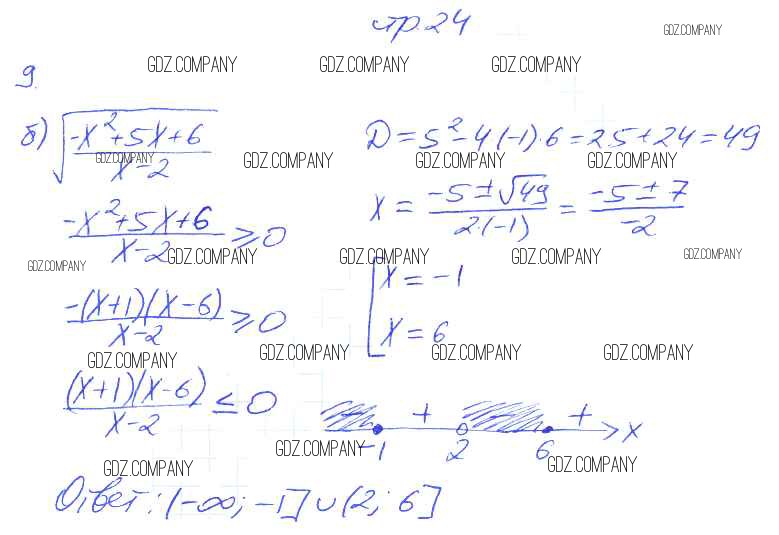 стр. 24
GDZ.COMPANY
GDZ.COMPANY GDZ.COMPANY GDZ.COMPANY
9.
б) √((-x²+5x+6)/(x-2)) D = 5² - 4·(-1)·6 = 25 + 24 = 49
GDZ.COMPANY GDZ.COMPANY GDZ.COMPANY GDZ.COMPANY
(-x²+5x+6)/(x-2) ≥ 0 x = (-5±√49)/(2·(-1)) = (-5±7)/(-2)
GDZ.COMPANY GDZ.COMPANY GDZ.COMPANY GDZ.COMPANY GDZ.COMPANY
-(x+1)(x-6)/(x-2) ≥ 0 [x = -1
x = 6
GDZ.COMPANY GDZ.COMPANY GDZ.COMPANY GDZ.COMPANY
(x+1)(x-6)/(x-2) ≤ 0
+ +
-1 2 6 x
GDZ.COMPANY GDZ.COMPANY GDZ.COMPANY
Ответ: (-∞; -1] ∪ (2; 6]